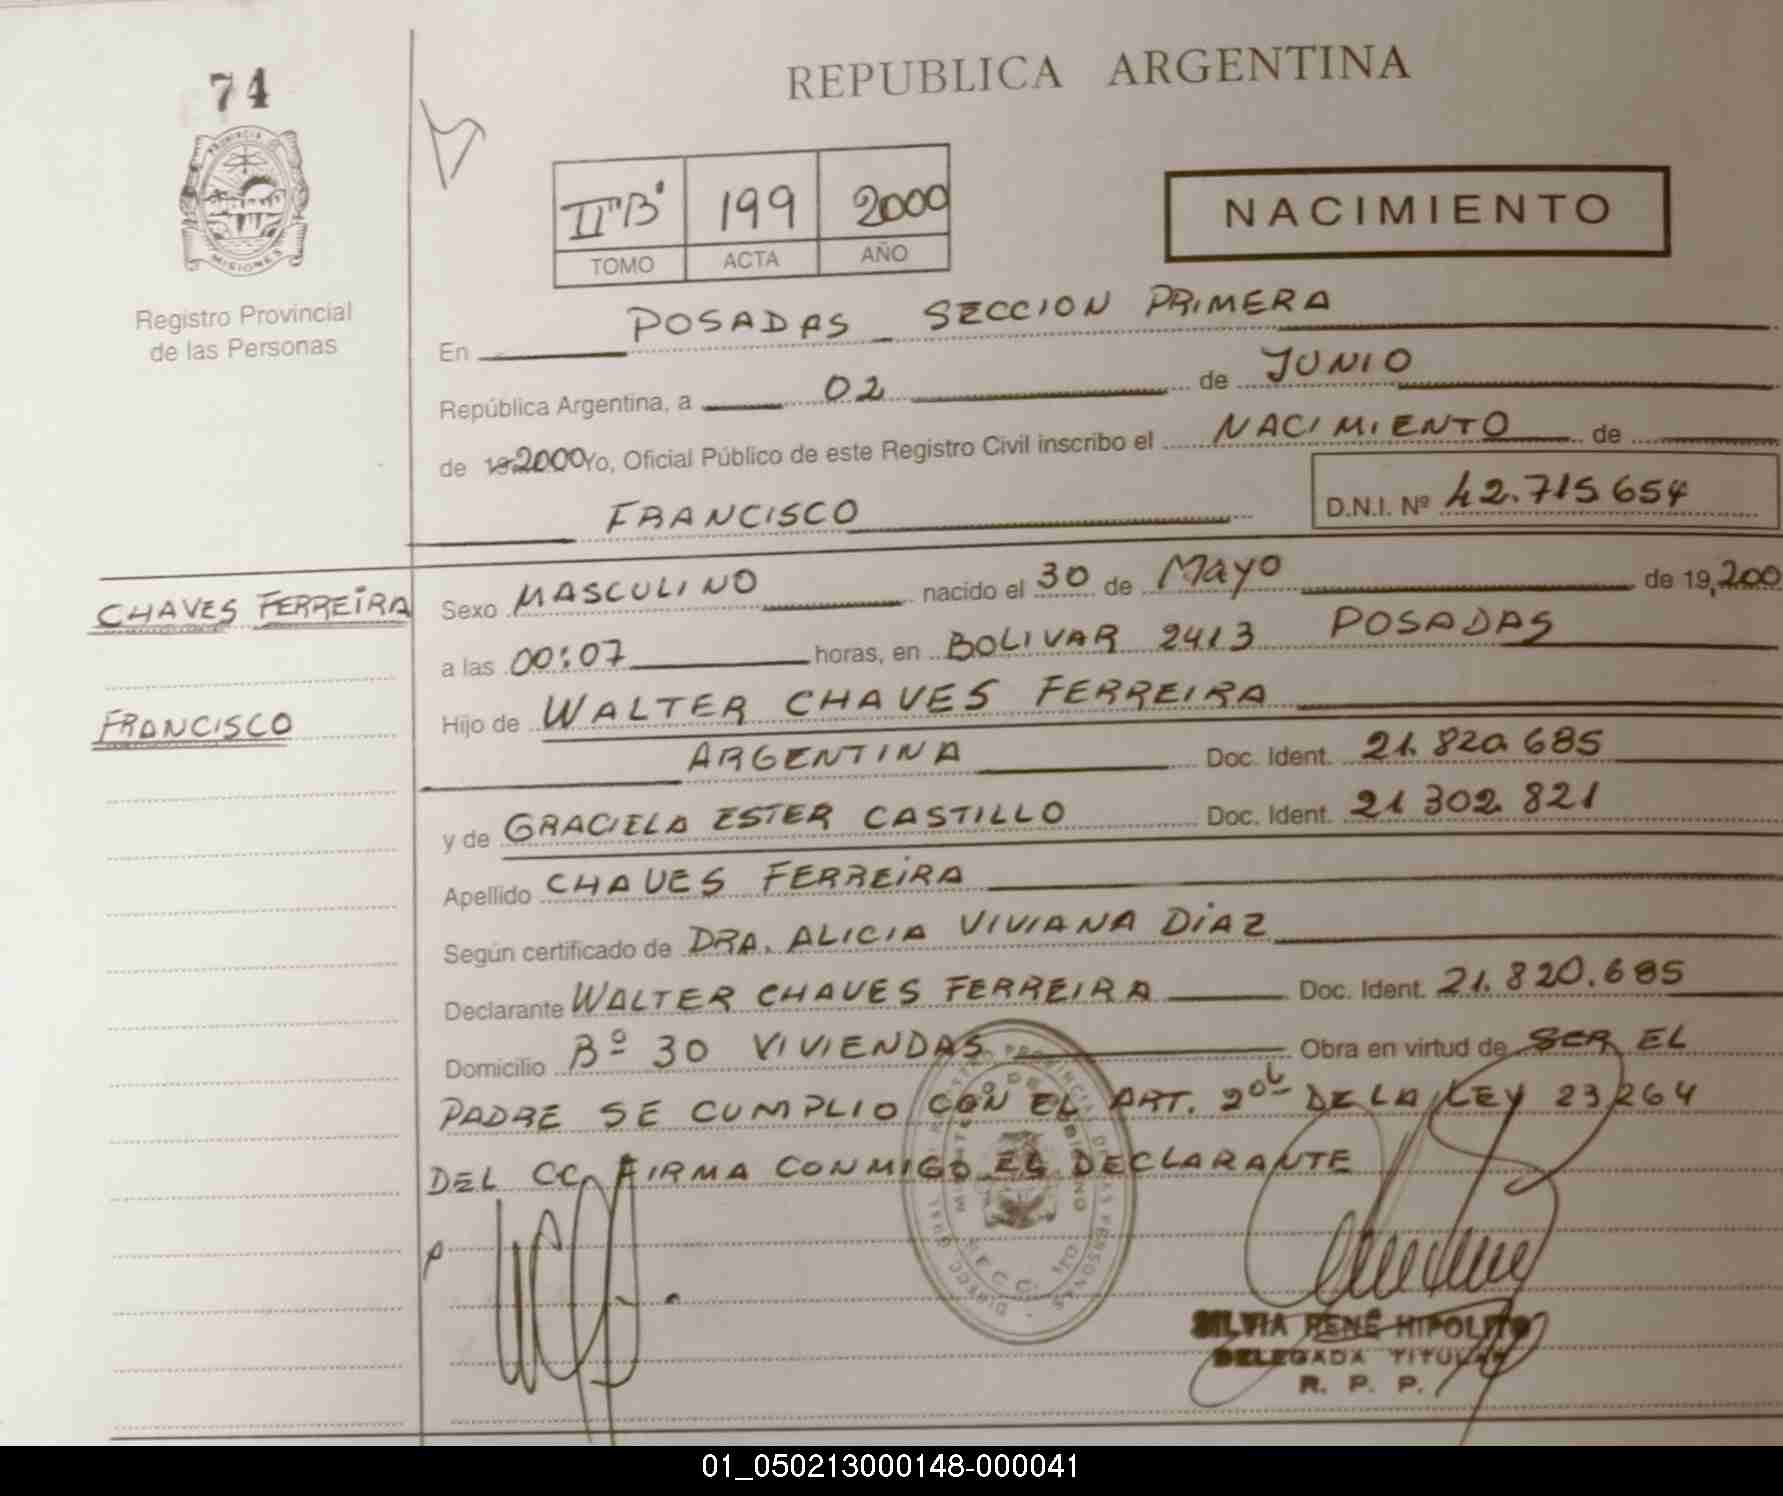 74
REPUBLICA ARGENTINA
PROVINCIA DE
MISIONES
Registro Provincial
de las Personas
IIºBº 199 2000
TOMO ACTA AÑO
NACIMIENTO
En POSADAS SECCION PRIMERA
República Argentina, a 02 de JUNIO
de 19 2000 Yo, Oficial Público de este Registro Civil inscribo el NACIMIENTO de
FRANCISCO
D.N.I. Nº 42.715654
CHAVES FERREIRA
FRANCISCO
Sexo MASCULINO nacido el 30 de Mayo de 19,200
a las 00:07 horas, en BOLIVAR 2413 POSADAS
Hijo de WALTER CHAVES FERREIRA
ARGENTINA Doc. Ident. 21.820685
y de GRACIELA ESTER CASTILLO Doc. Ident. 21 302 821
Apellido CHAVES FERREIRA
Según certificado de DRA. ALICIA VIVIANA DIAZ
Declarante WALTER CHAVES FERREIRA Doc. Ident. 21.820.685
Domicilio Bº 30 VIVIENDAS Obra en virtud de SER EL
PADRE SE CUMPLIO CON EL ART. 2º DE LA LEY 23264
DEL CC. FIRMA CONMIGO EL DECLARANTE
SILVIA RENÉ HIPOLITO
DELEGADA TITULAR
R. P. P.
01_050213000148-000041